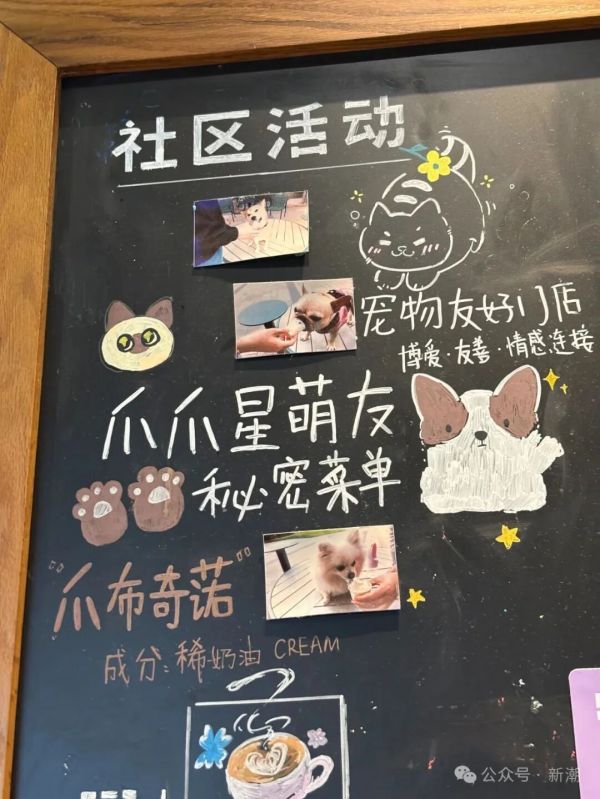 社区活动
宠物友好门店
博爱·友善·情感连接
爪爪星萌友
秘密菜单
"爪布奇诺"
成分:稀奶油 CREAM
公众号·新潮